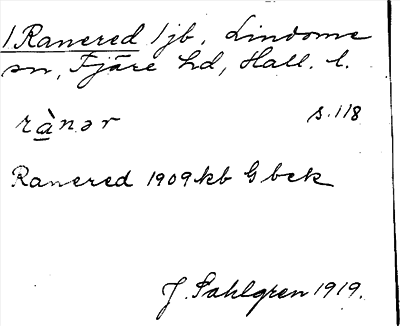 /Ranered/ jb, Lindome
sn, Fjäre hd, Hall. l.
rànər s. 118
Ranered 1909 kb Gbck
J. Sahlgren 1919.